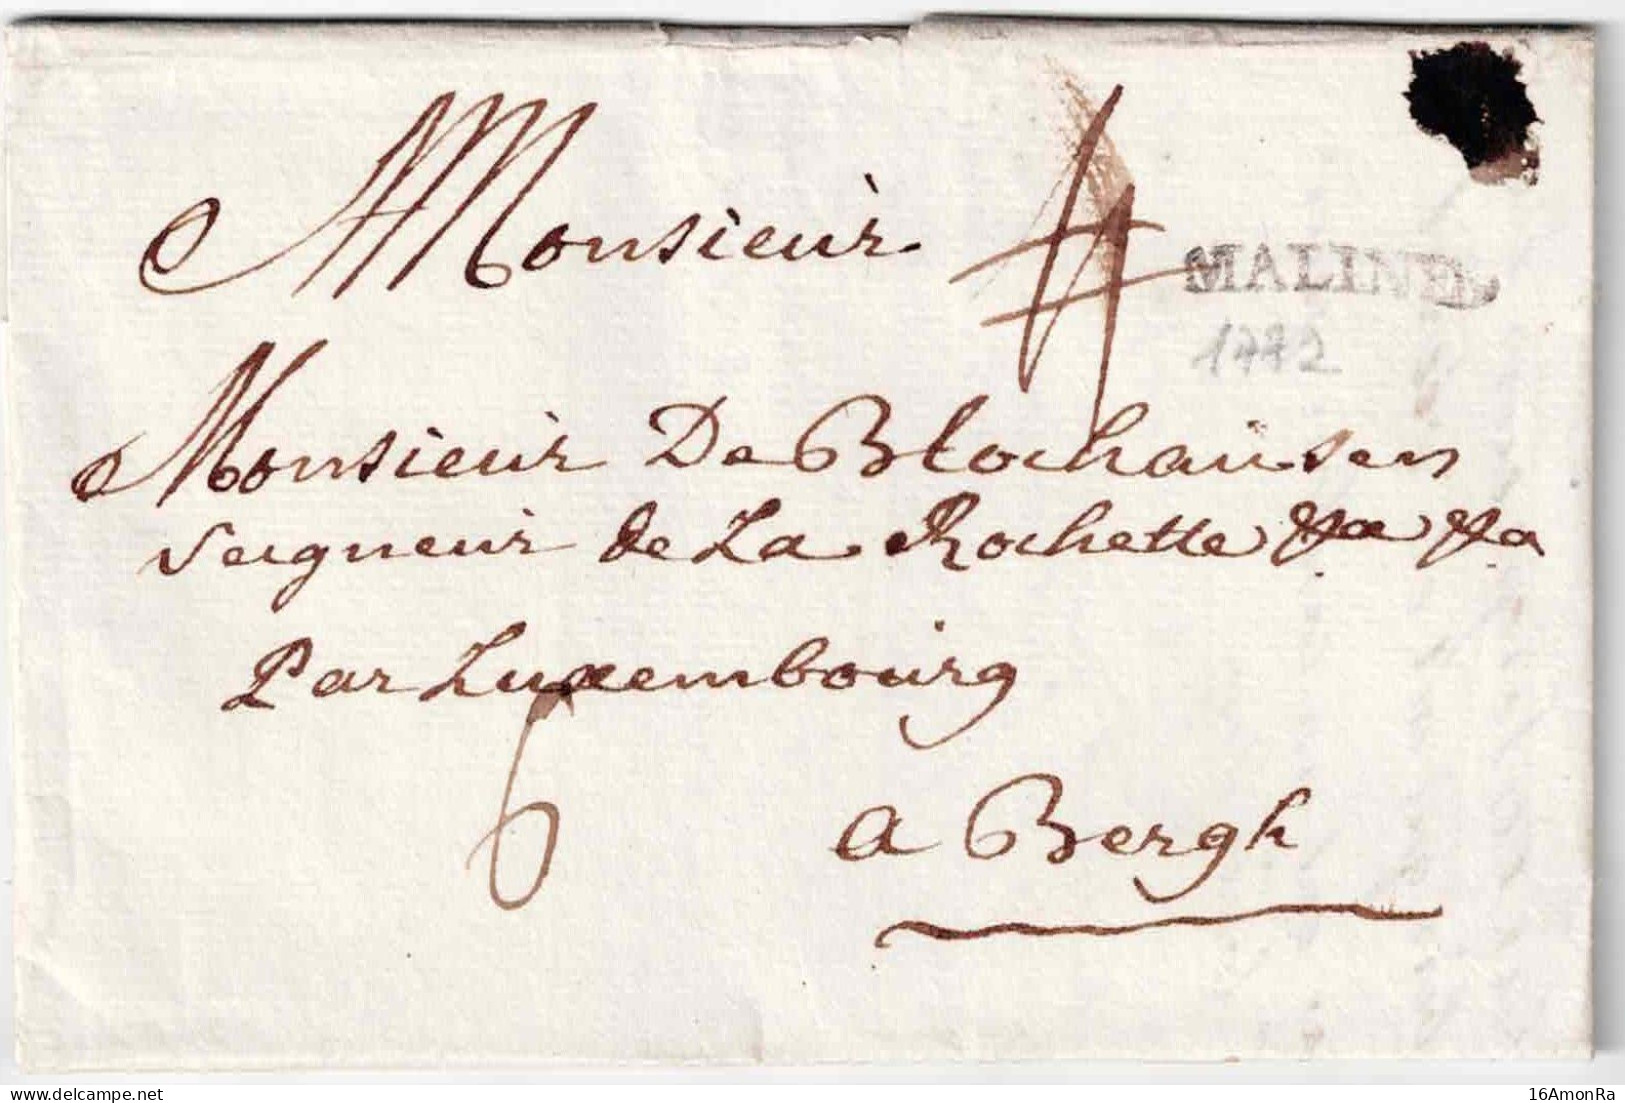 Monsieur
MALINES
1772
Monsieur De Blochausen
Seigneur de La Rochette &a &a
Par Luxembourg
6
a Bergh
delcampe.net
16AmonRa